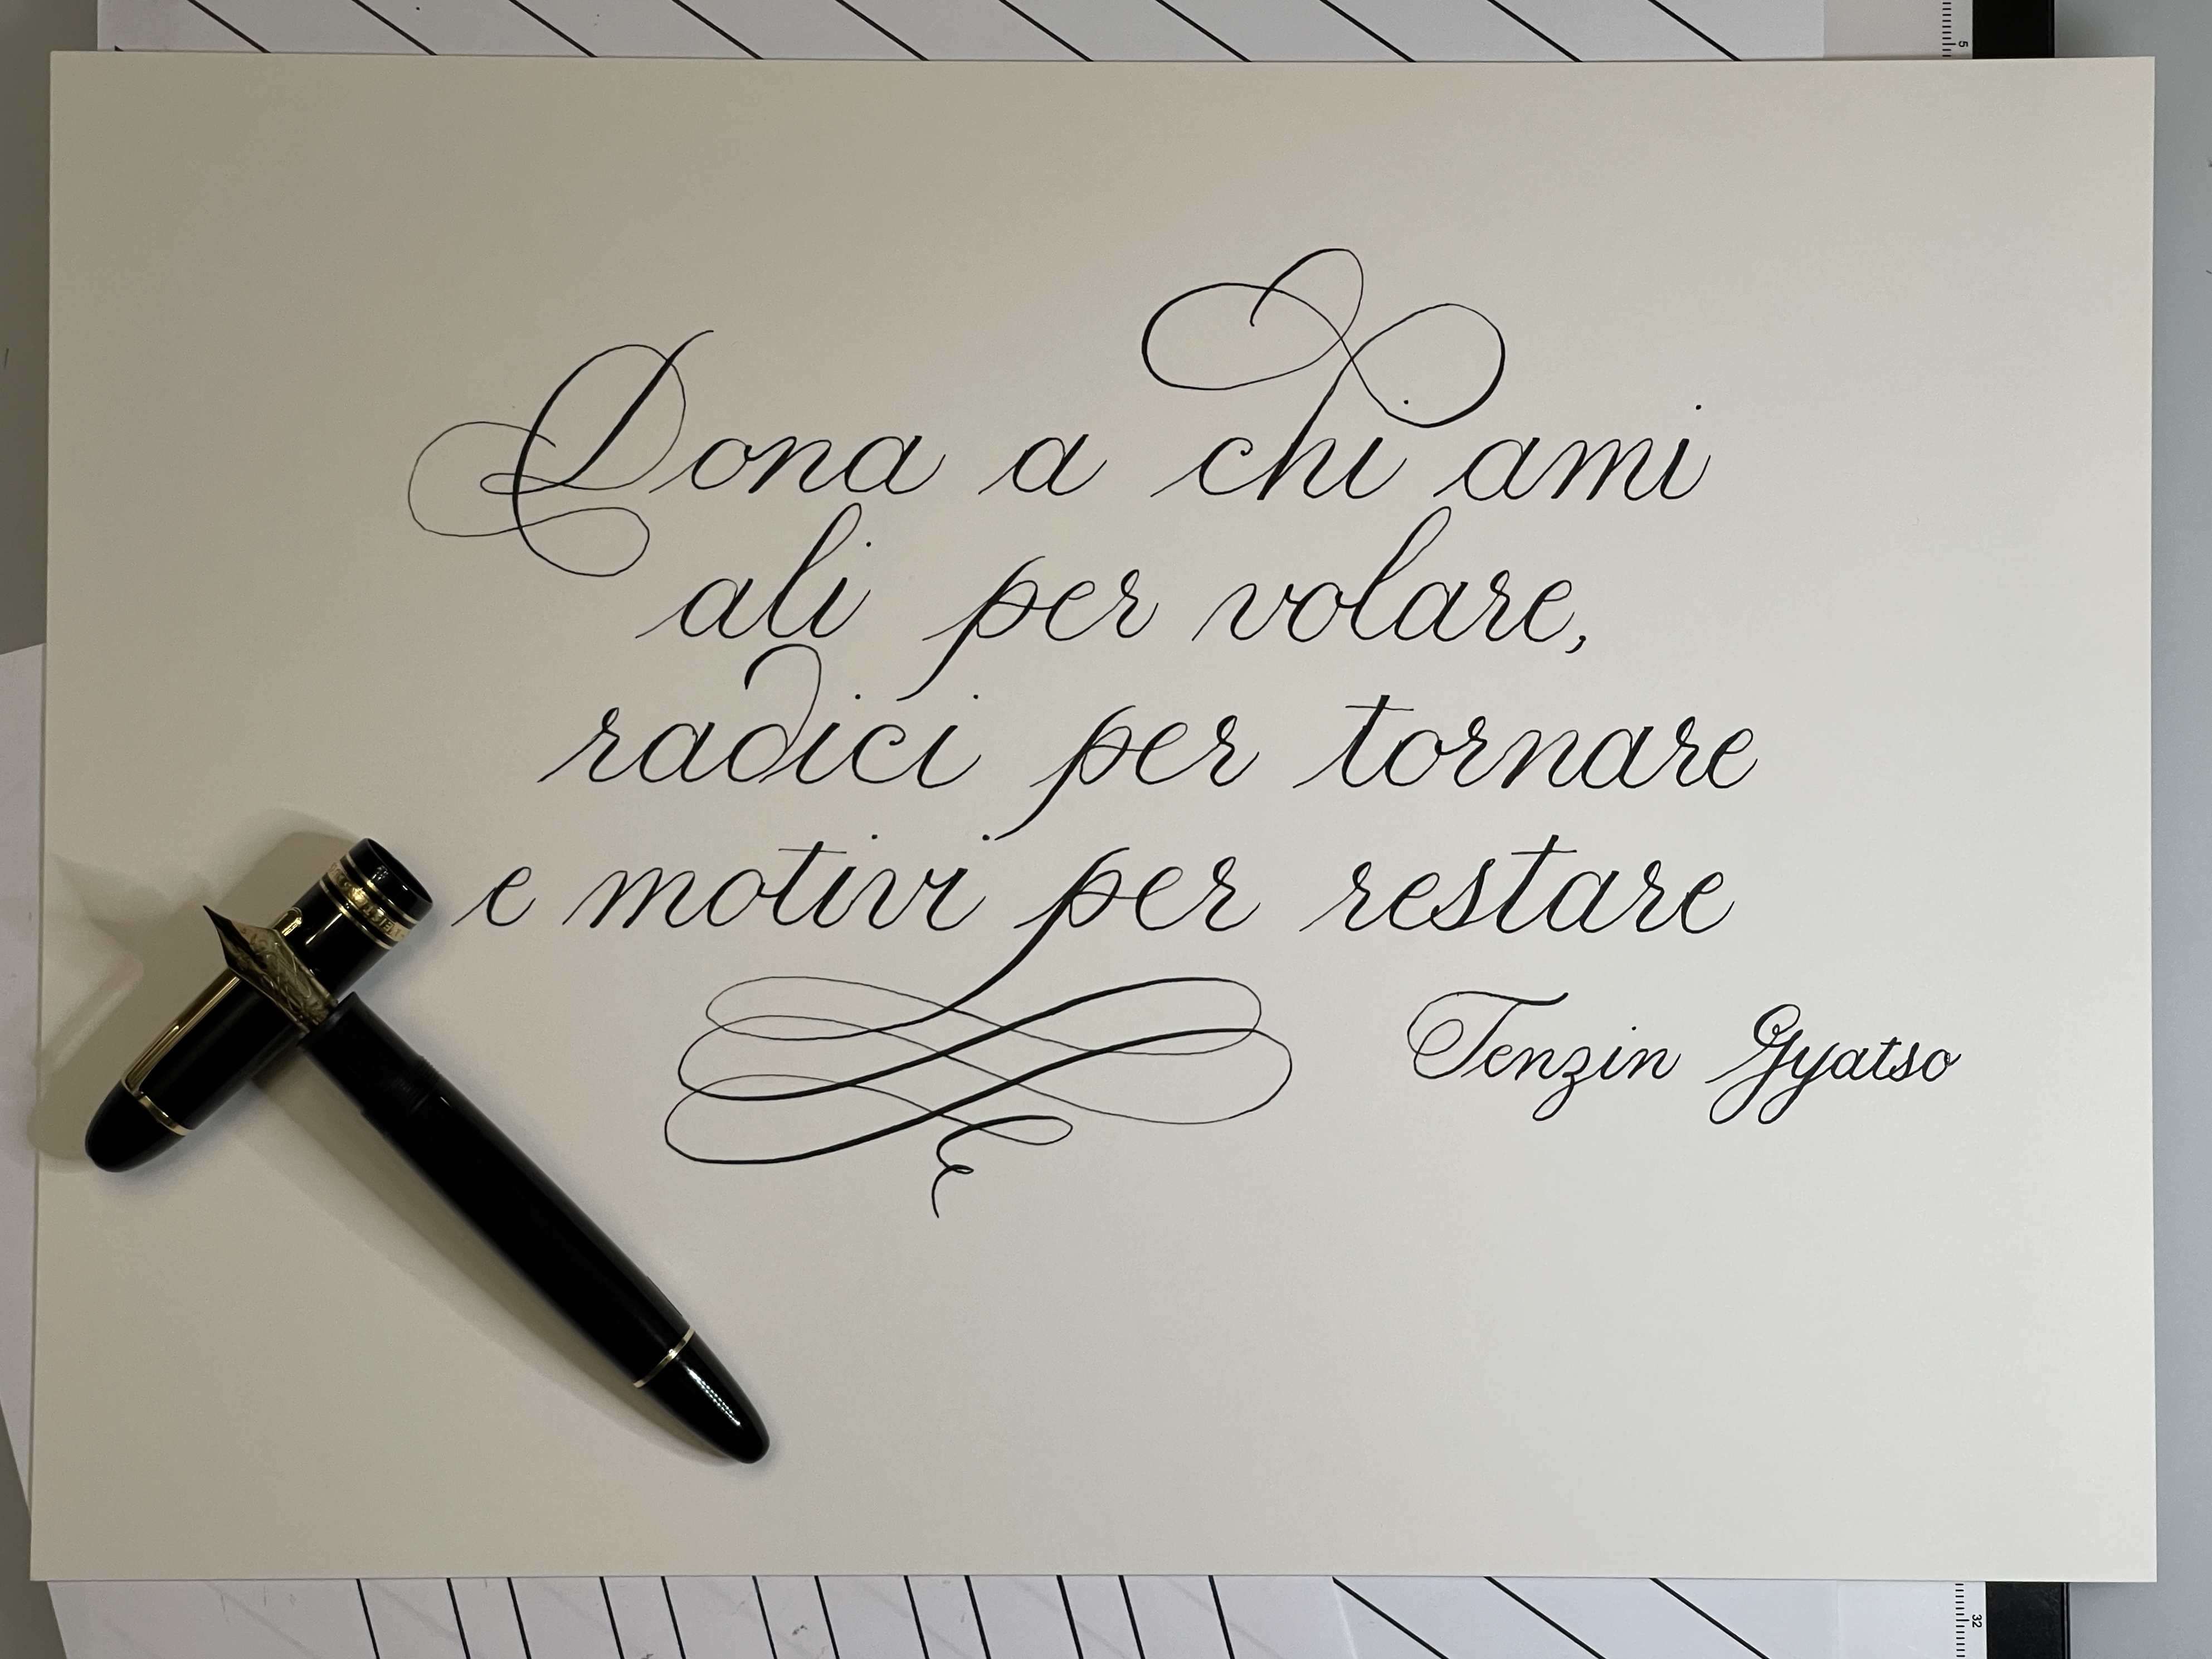 Dona a chi ami
ali per volare,
radici per tornare
e motivi per restare
Tenzin Gyatso
5
32